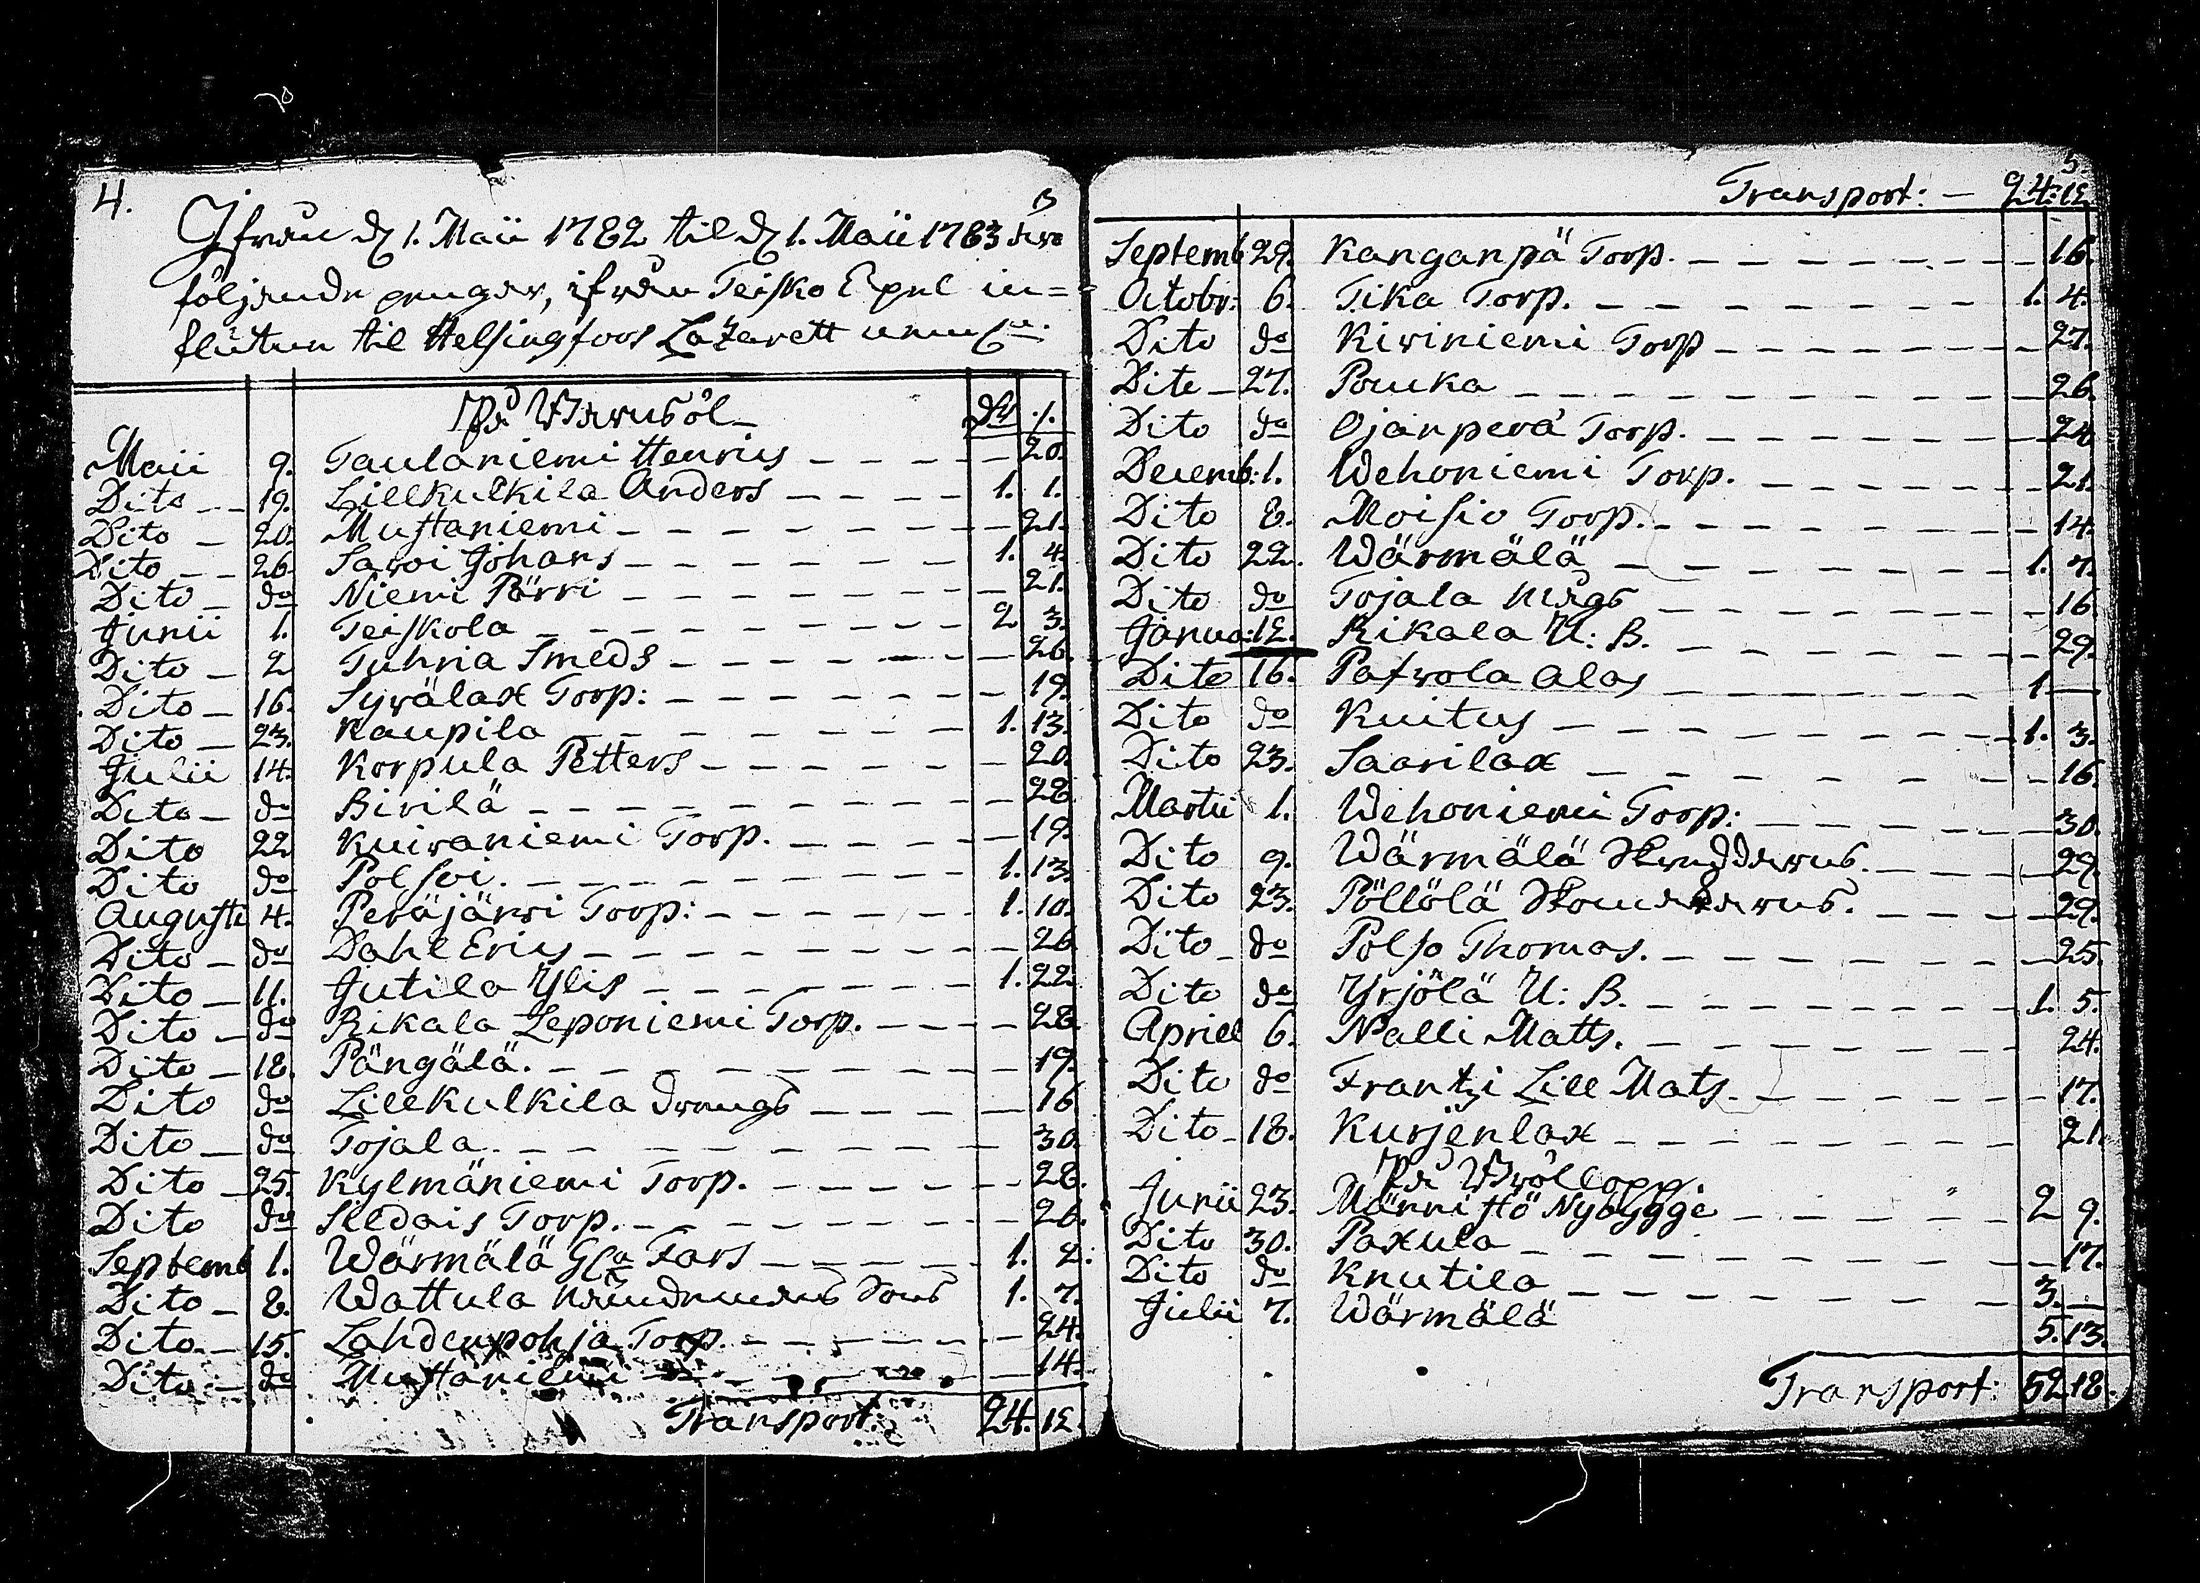 4.
Ifrån d 1. Maii 1782 til d 1. Maii 1783 äro
följande penger, ifrån Teisko Capel in=
flutne til Helsingfors Lazarett
På Barnsöl
Maii 9. Taulaniemi Henrics 20.
Dito 19. Lillkulkila Anders 1. 1.
Dito 20. Mustaniemi 21.
Dito 26. Savoi Johans 1. 4.
Dito do Niemi Pärri 21.
Junii 1. Teiskola 2 3.
Dito 2 Tuhria Smeds 26.
Dito 16. Syvälax Torp: 19.
Dito 23. Kaupila 1. 13.
Julii 14. Korpula Petters 20.
Dito do Birilä 28
Dito 22 Kuivaniemi Torp. 19.
Dito do Polsoi. 1. 13.
Augusti 4. Peräjärvi Torp: 1. 10.
Dito do Dahl Erics 26
Dito 11. Jutila Ylis 1. 22.
Dito do Rikala Leponiemi Torp. 28
Dito 18. Pängälä. 19.
Dito do Lillkulkila Drengs 16
Dito do Tojala. 30.
Dito 25. Kylmäniemi Torp. 28.
Dito do Sildais Torp. 26.
Septemb 1. Wärmälä Gla Fars 1. 2.
Dito 8. Wattula Nämdemans Sons 1. 7.
Dito 15. Lahdenpohja Torp. 24.
Dito do Mustaniemi 14.
Transport: 24. 12.
5.
Transport: 24. 12
Septemb 29. Kanganpä Torp. 16.
Octobr: 6. Tika Torp. 1. 4.
Dito do Kiviniemi Torp 27.
Dito 27. Pouka 26.
Dito do Ojanperä Torp. 24
Decemb: 1. Wehoniemi Torp. 21.
Dito 8. Moisio Torp. 14.
Dito 22. Wärmälä 1. 7.
Dito do Tojala Mågs 16.
Janua: 12. Rikala U: B. 29.
Dito 16. Pafvola Alas 1
Dito do Kuitus 1. 3.
Dito 23. Saarilax 16.
Martii 1. Wehoniemi Torp: 30.
Dito 9. Wärmälä Skräddarens. 29.
Dito 23. Pöllölä Skomakarens. 29.
Dito do Polso Thomas. 25.
Dito do Yrjölä U: B. 1. 5.
Aprill 6. Nalli Matts. 24.
Dito do Frantzi Lill Mats 17.
Dito 18. Kurjenlax 21.
På Bröllopp.
Junii 23. Männistö Nybygge 2 9.
Dito 30. Paxula 17.
Dito do Knutila 3.
Julii 7. Wärmälä 5. 13.
Transport: 52 18.